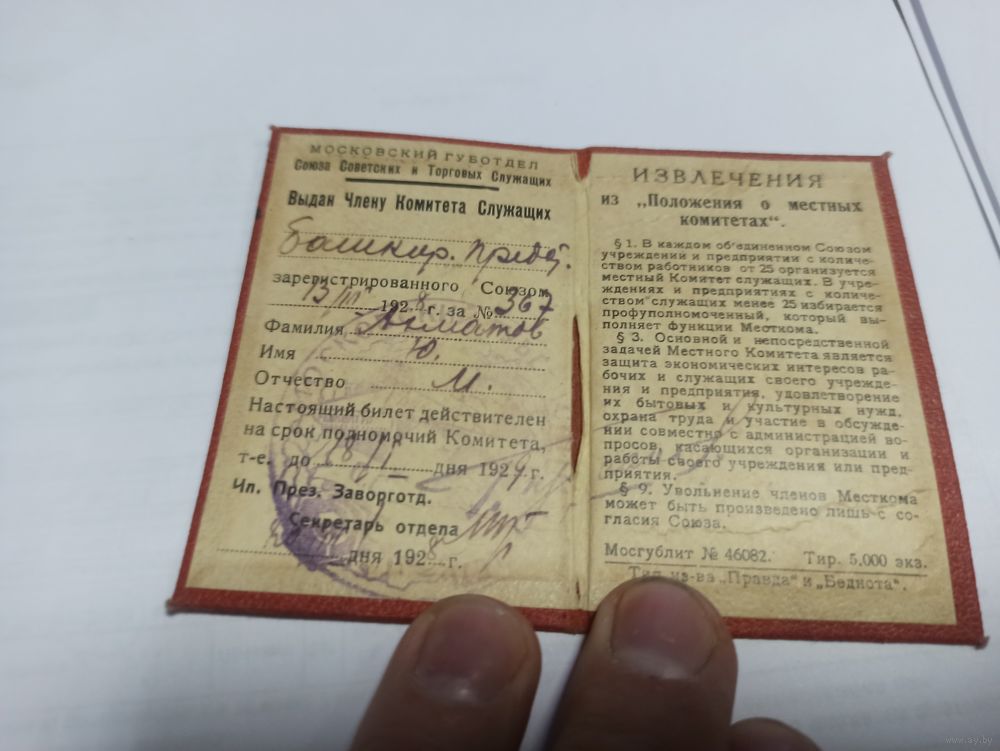 МОСКОВСКИЙ ГУБОТДЕЛ
Союза Советских и Торговых Служащих
Выдан Члену Комитета Служащих
Башкир. Предст.
зарегистрированного Союзом
192 8 г. за № 367
Фамилия Ахматов
Имя Ю.
Отчество М.
Настоящий билет действителен
на срок полномочий Комитета,
т-е. до дня 192 г.
Чл. През. Заворготд.
Секретарь отдела
дня 1928 г.
ИЗВЛЕЧЕНИЯ
из „Положения о местных
комитетах“.
§ 1. В каждом об'единенном Союзом
учреждении и предприятии с количе-
ством работников от 25 организуется
местный Комитет служащих. В учре-
ждениях и предприятиях с количе-
ством служащих менее 25 избирается
профуполномоченный, который вы-
полняет функции Месткома.
§ 3. Основной и непосредственной
задачей Местного Комитета является
защита экономических интересов ра-
бочих и служащих своего учрежде-
ния и предприятия, удовлетворение
их бытовых и культурных нужд,
охрана труда и участие в обсужде-
нии совместно с администрацией во-
просов, касающихся организации и
работы своего учреждения или пред-
приятия.
§ 9. Увольнение членов Месткома
может быть произведено лишь с со-
гласия Союза.
Мосгублит № 46082. Тир. 5.000 экз.
Тип. из-ва „Правда“ и „Беднота“.
www.ay.by